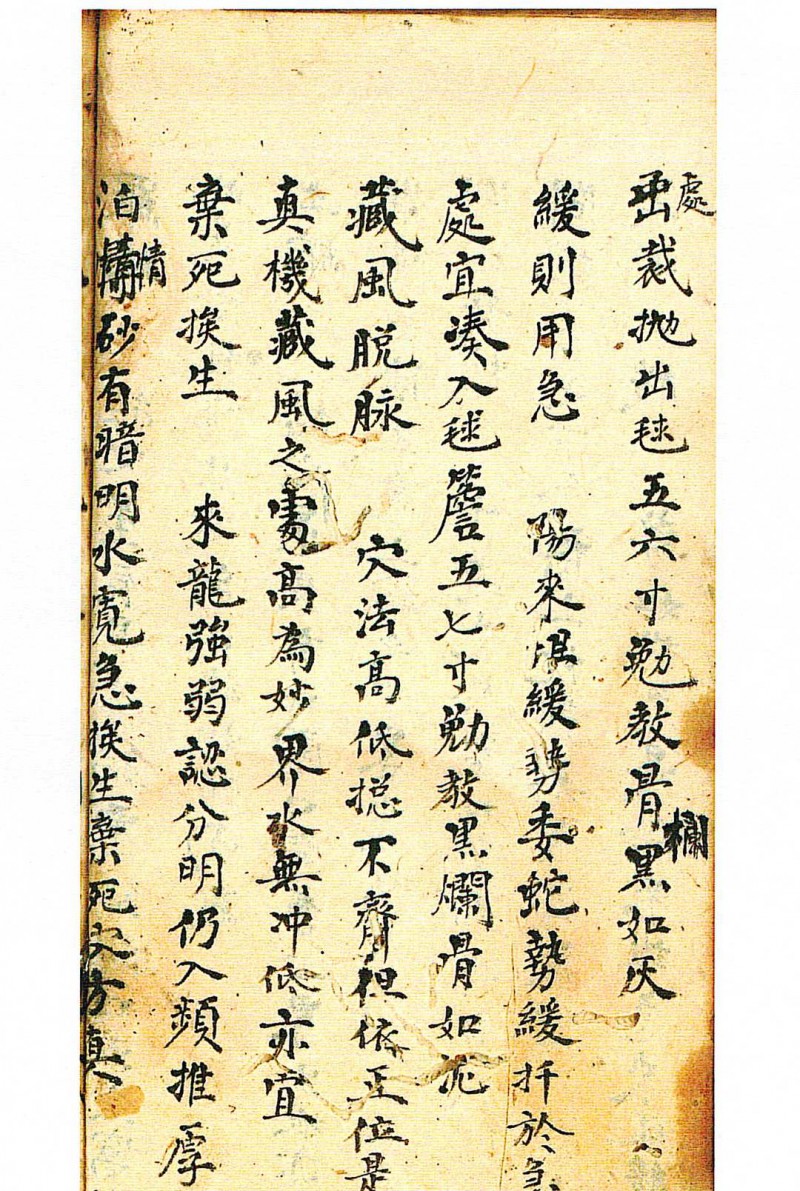 處裁拋出毬五六寸勉教骨黑爛如灰
緩則用急　陽來涅緩勢委蛇勢緩扦於急
處宜湊入毬簷五七寸勉教黑爛骨如泥
藏風脫脉　穴法高低揔不齊但依正位是
真機藏風之處高為妙界水無冲低亦宜
棄死挨生　來龍強弱認分明仍入頻推厚
泊情砂有暗明水寬急挨生棄死穴方真